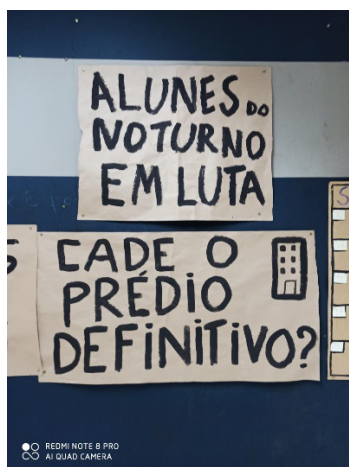 ALUNES DO
NOTURNO
EM LUTA
CADE O
PRÉDIO
DEFINITIVO?
S
S
REDMI NOTE 8 PRO
AI QUAD CAMERA